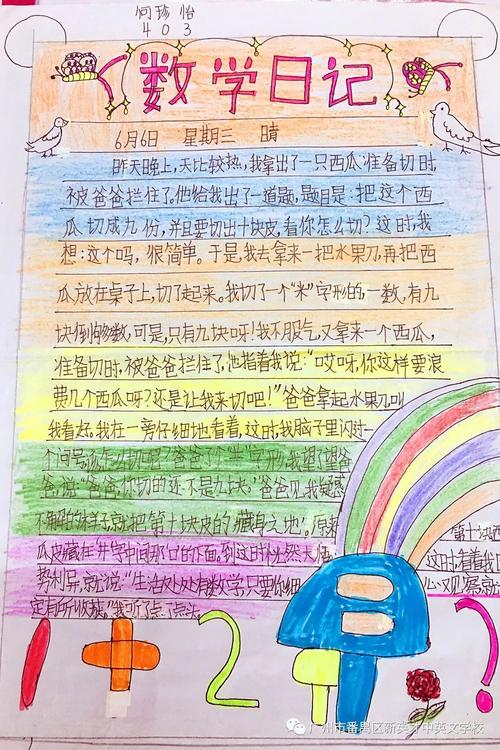 何珍怡
403
数学日记
6月6日 星期三 晴
昨天晚上,天比较热,我拿出了一只西瓜准备切时,
被爸爸拦住了。他给我出了一道题,题目是:把这个西
瓜切成九份,并且要切出十块皮,看你怎么切?这时,我
想:这个吗,很简单。于是,我去拿来一把水果刀,再把西
瓜放在桌子上,切了起来。我切了一个“米”字形的,一数,有九
块倒够数,可是,只有九块呀!我不服气,又拿来一个西瓜,
准备切时,被爸爸拦住了,他指着我说:“哎呀,你这样要浪
费几个西瓜呀?还是让我来切吧!”爸爸拿起水果刀,叫
我看好。我在一旁仔细地看着,这时,我脑子里闪过一
个问号:该怎么切呢?爸爸了个“井”字形,我望了望爸
爸,说:“爸爸,你切的还不是九块。”爸爸见我疑惑
不解的样子,就把第十块皮的“藏身之地”。原来 第十块西
瓜皮藏在“井”字中间那口的下面。到这时恍然大悟 这时,看着我
势利导,就说:“生活处处有数学,只要你细 心观察,就
定有所收获。”我听了点了点头。
1+2
?
广州市番禺区新英才中英文学校